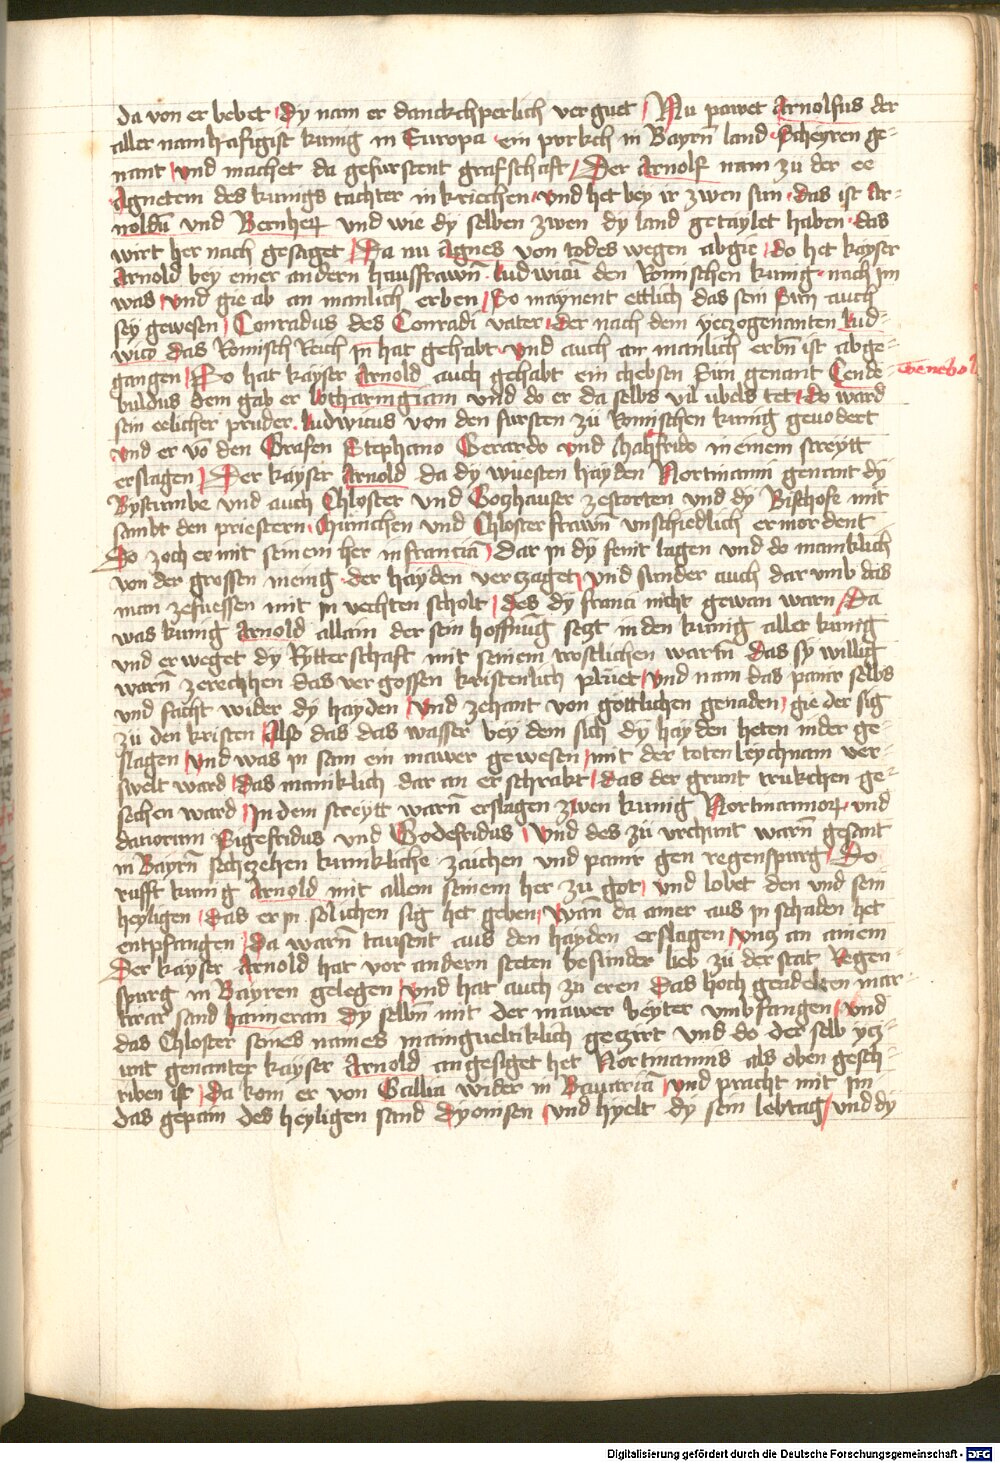 da von er bebet · Dy nam er danckchperlich ver guet / Nu pawet Arnolfus der
aller namhafigist kunig in Europa · ein purkch in Bayrn̄ land · Scheyren ge-
nant / und machet da gefurstent grafschaft / Der Arnolf nam zu der ee
Agnetem des kunigs tachter in kriechen · und het bey ir zwen sun · das ist Ar-
noldū und Bernheꝝ und wie dy selben zwen dy land getaylet haben · das
wirt her nach gesaget / Da nu Agnes von todes wegen abgie / do het kayser
Arnold bey einer andern hausfrawn̄ · Ludwicū den Romischen kunig · nach im
was / und gie ab an manlich erben / So maynent ettlich das sein Sun auch
sey gewesen / Conradus des Conradi vater / der nach dem yeczogenanten Lud-
wico das Romisch Reich in hat gehabt · und auch an manlich erbn̄ ist abge-
gangen / So hat kayser Arnold auch gehabt ein chebsen Sun genant Cende-
buldus dem gab er lotharingiam und do er da selbs vil ubels tet / do ward
sein eelicher pruder · Ludwicus von den fursten zu Romischen kunig geuodert
und er vō den Grafen Stephano Gerardo und Mahfrido in einem streytt
erslagen / Der kayser Arnold da dy wuesten hayden Nortmanni genant dy
Bystumbe und auch Chloster und Gotzhauser zestorten und dy Bischofe mit
sambt den priestern · Munichen und Chlosterfrawn̄ unschiedlich ermordent
Do zoch er mit seinem her in franciā / Dar in dy feint lagen und do manklich
von der grossen menig · der hayden verczaget / und sunder auch dar umb das
man zefuessen mit in vechten scholt / Des dy franci nicht gewan warn / Da
was kunig Arnold allain der sein hoffnūg setzt in den kunig aller kunig
und er weget dy Rytterschaft mit seinem trostlichen wartn̄ Das sy willig
warn̄ zerechhen das vergossen kristenlich pluet / und nam das panir selbs
und facht wider dy hayden / und zehant von gottlichen genaden / gie der sig
zu den kristen / Also das das wasser bey dem sich dy hayden heten nider ge-
slagen / und was in sam ein mawer gewesen / mit der toten leychnam ver-
swelt ward / Das maniklich dar an erschrakt / das der grunt trukchen ge-
sechen ward / In dem streytt warn̄ erslagen zwen kunig Nortmannoꝝ und
dariorum Sigefridus und Godefridus / Und des zu vrchunt warn̄ gesant
in Bayrn̄ sechczehen kunikliche zaichen und panir gen regenspurg / Do
rufft kunig Arnold mit allem seinem her zu got / und lobet den und sein
heyligen / Das er in solichen sig het geben / wan̄ da ainer aus in schaden het
entpfangen / Da warn̄ tausent aus den hayden erslagen / untz an ainem
Der kayser Arnold hat vor andern steten besunder lieb zu der stat Regen-
spurg in Bayren gelegen / und hat auch zu eren Das hoch gendeten mar-
trar sand haimeran Dy selbn̄ mit der mawer beyter umbfangen / und
das Chloster seines names maingueltiklich geczirt und do der selb ycz-
unt genanter kayser Arnold angesiget het Nortmannis als oben gesch-
riben ist / Da kom er von Gallia wider in Bauariā / und pracht mit im
das gepain des heyligen sand Dyonisen / und hyelt dy sein lebtag / und dy